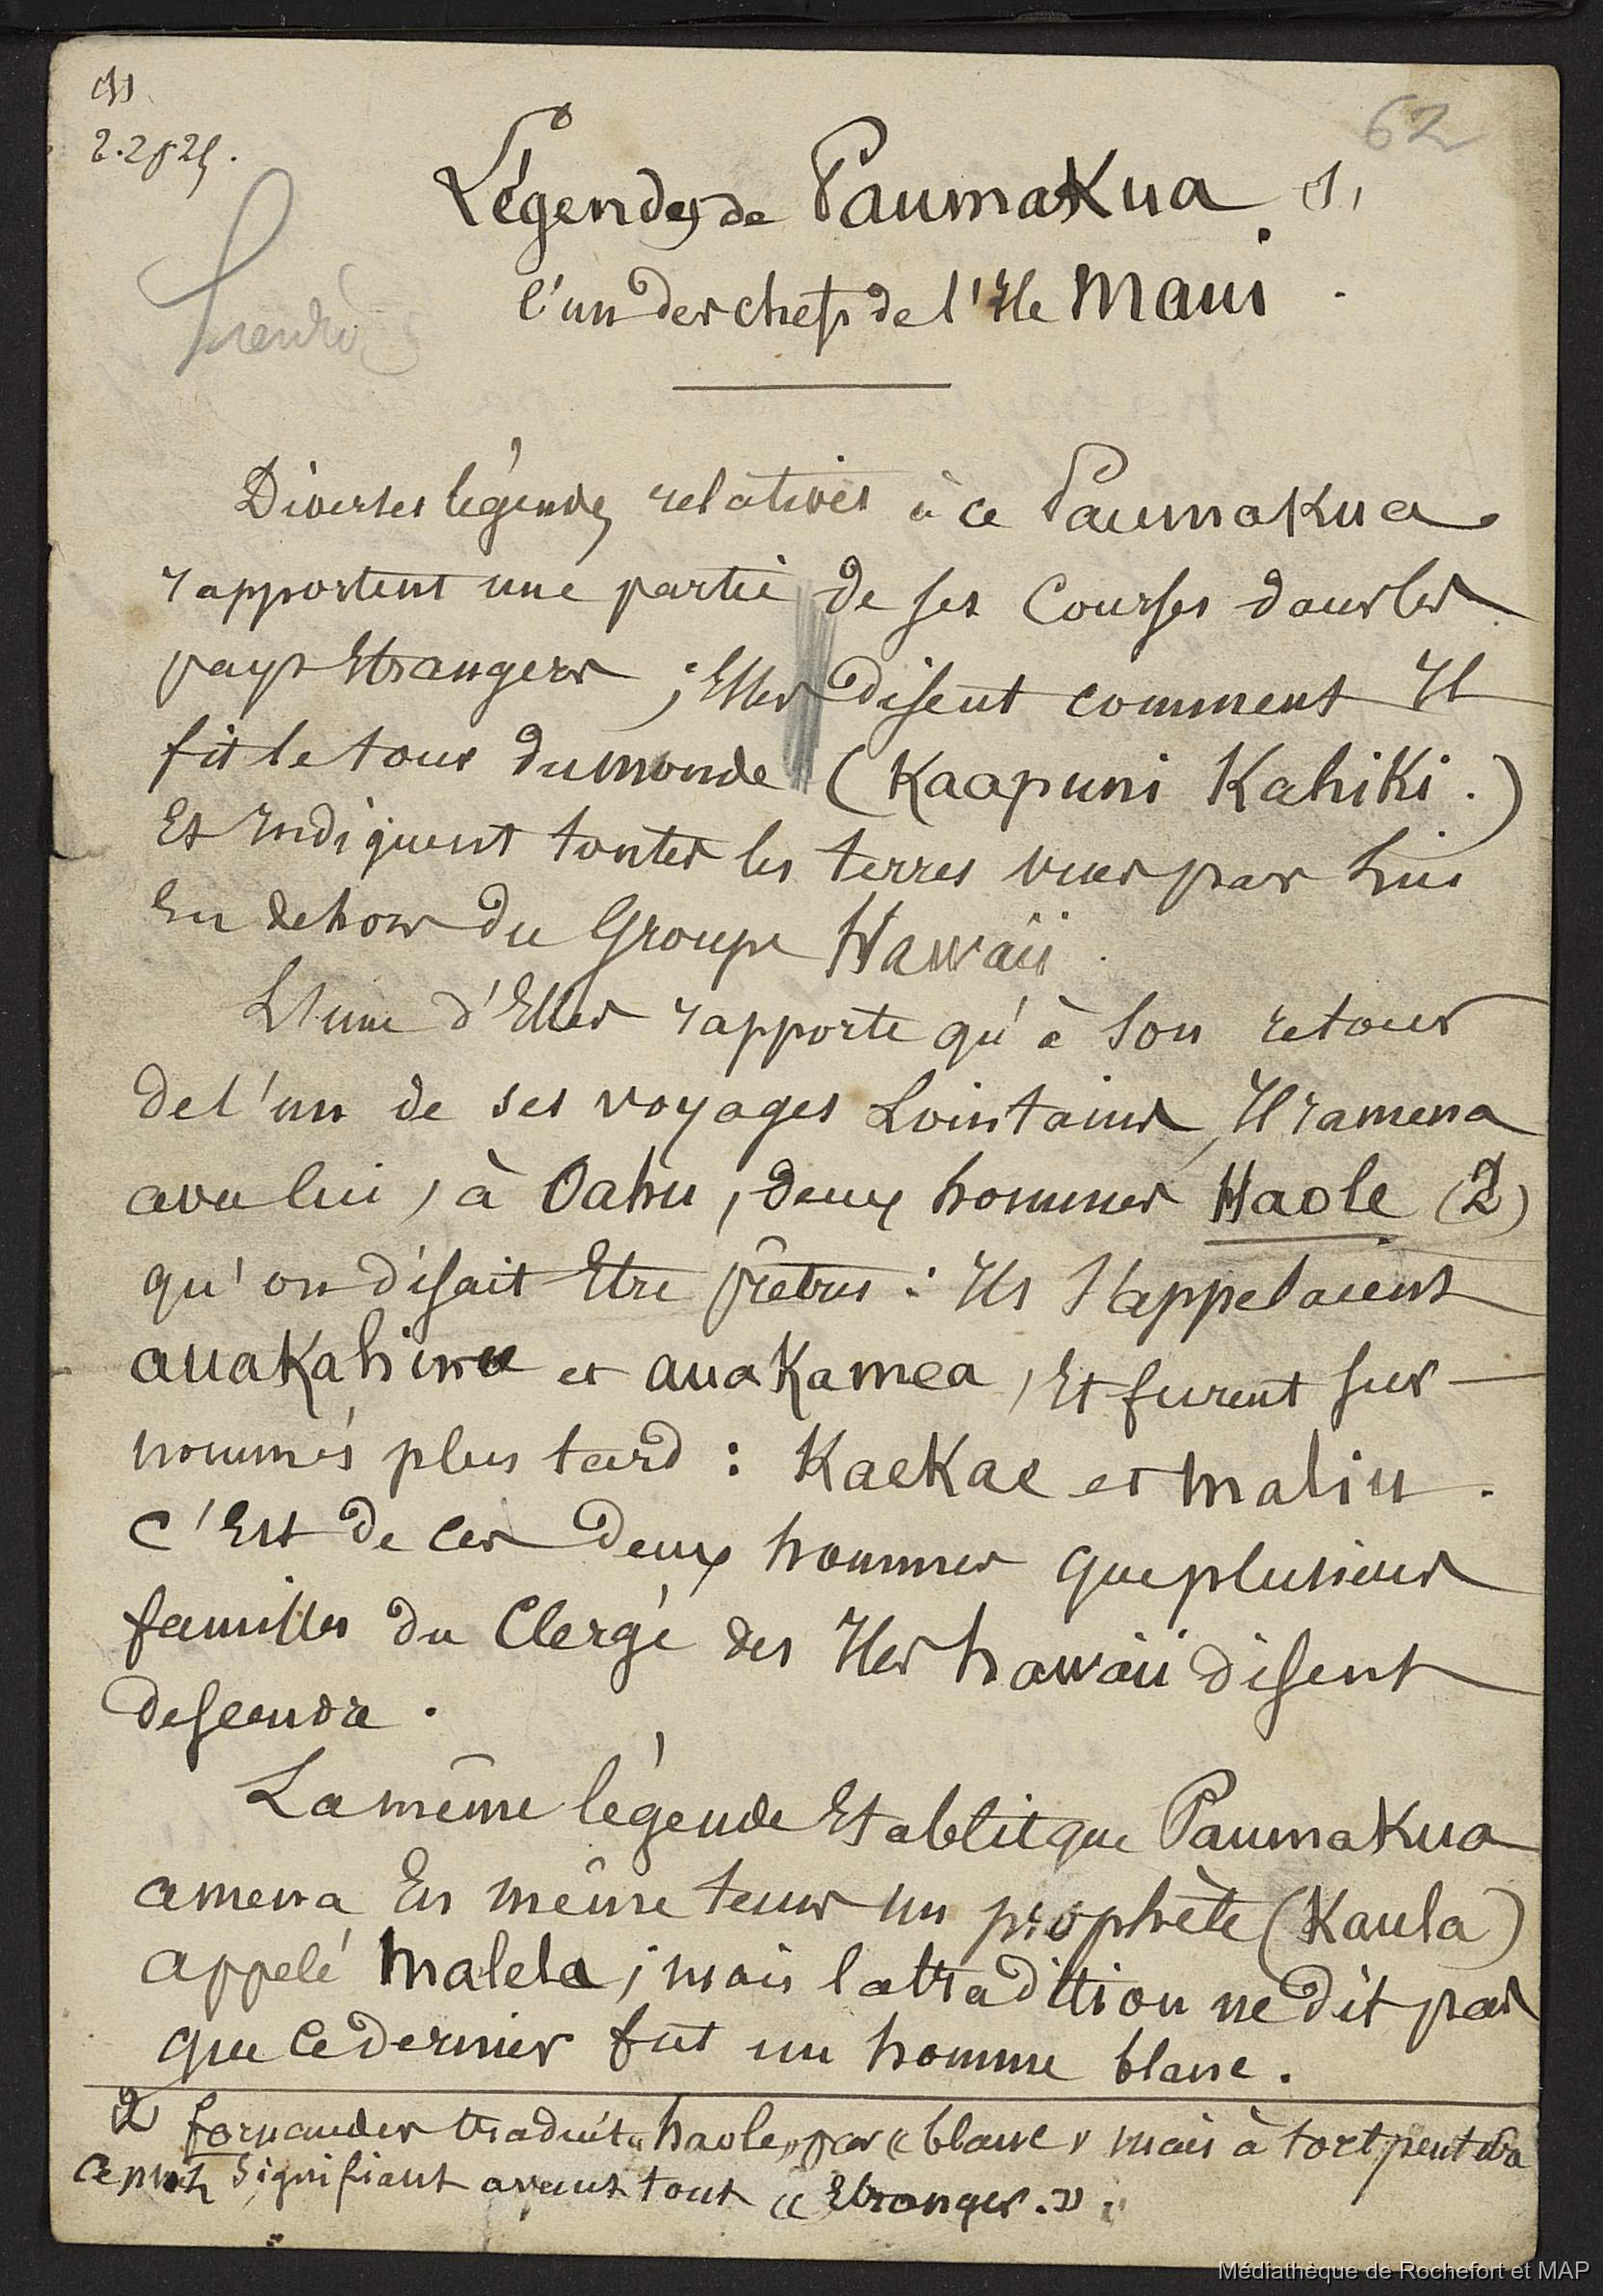 62
Légendes de Paumakua
l'un des chefs de l'Ile Maui
Diverses légendes relatives à ce Paumakua
rapportent une partie de ses Courses dans les
pays Etrangers ; Elles disent comment Il
fit le tour du monde (Kaapuni Kahiki.)
Et Indiquent toutes les terres vues par Lui
En dehors du Groupe Hawaii.
L'une d'Elles rapporte qu'à Son retour
de l'un de ses voyages Lointains, Il ramena
avec lui, à Oahu, deux hommes Haole (2)
qu'on disait Etre prêtres : Ils S'appelaient
auakahinu et auakamea, Et furent sur-
nommés plus tard : Kaekae et Maliu.
C'Est de ces deux hommes que plusieurs
familles du Clergé des Iles hawaii disent
descendre.
La même légende Etablit que Paumakua
amena En même temps un prophète (Kaula)
appelé Malela ; mais la tradition ne dit pas
que ce dernier fut un homme blanc.
2 fornander traduit « haole » par « blanc » mais à tort peut être
ce mot signifiant avant tout « Etranger. »
Médiathèque de Rochefort et MAP